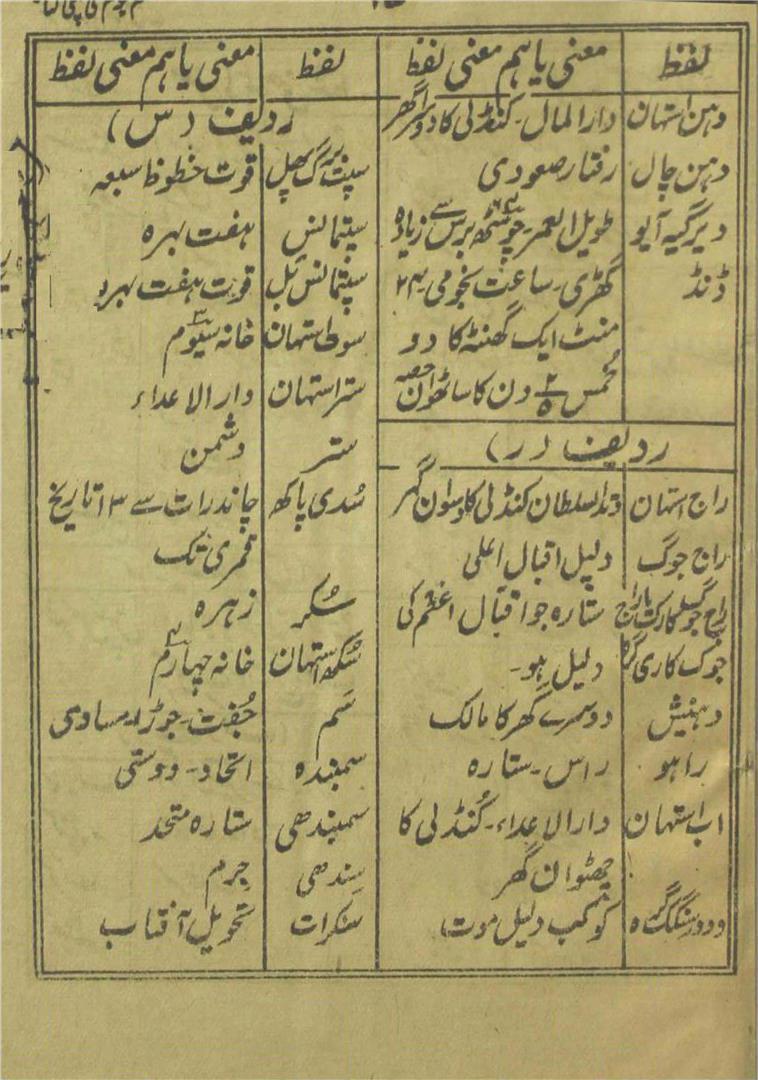 لفظ | معنی یا ہم معنی لفظ
دہن استہان | دارالمال۔ کنڈلی کا دوسرا گھر
دہن چال | رفتار صعودی
دیرگیہ آیو | طویل العمر۔ چونسٹھ ۶۴ برس سے زیادہ
ڈنڈ | گھڑی۔ ساعت نجومی ۲۴
منٹ ایک گھنٹہ کا دو
خمس ۲/۵ دن کا ساٹھواں حصہ
ردیف (ر)
راج استہان | کنڈلی کا دسوان گھر
راج جوگ | دلیل اقبال اعلی
راج جوگ کارک یا راج | ستارہ جو اقبال اعظم کی
جوگ کاری گرہ | دلیل ہو۔
دہنیش | دوسرے گھر کا مالک
راہو | راس۔ ستارہ
اب استہان | دارالاعداء۔ کنڈلی کا
چھٹوان گھر
کوکب دلیل موت
لفظ | معنی یا ہم معنی لفظ
ردیف (س)
سپت برگ پھل | قوت خطوظ سبعہ
سپتمانس | ہفت بہرہ
سپتمانس بل | قوت ہفت بہرہ
استہان | خانہ سیوم ۳
ستر استہان | دارالاعداء
ستر | دشمن
سُدی پاکھ | چاند رات سے ۱۳ تاریخ
قمری تک
سُکر | زہرہ
سُکھ استہان | خانہ چہارم ۴
سَم | جُفت۔ جوڑا۔ مساوی
سمبندہ | اتحاد۔ دوستی
سمبندھی | ستارہ متحد
سندھی | جرم
سنکرات | تحویل آفتاب